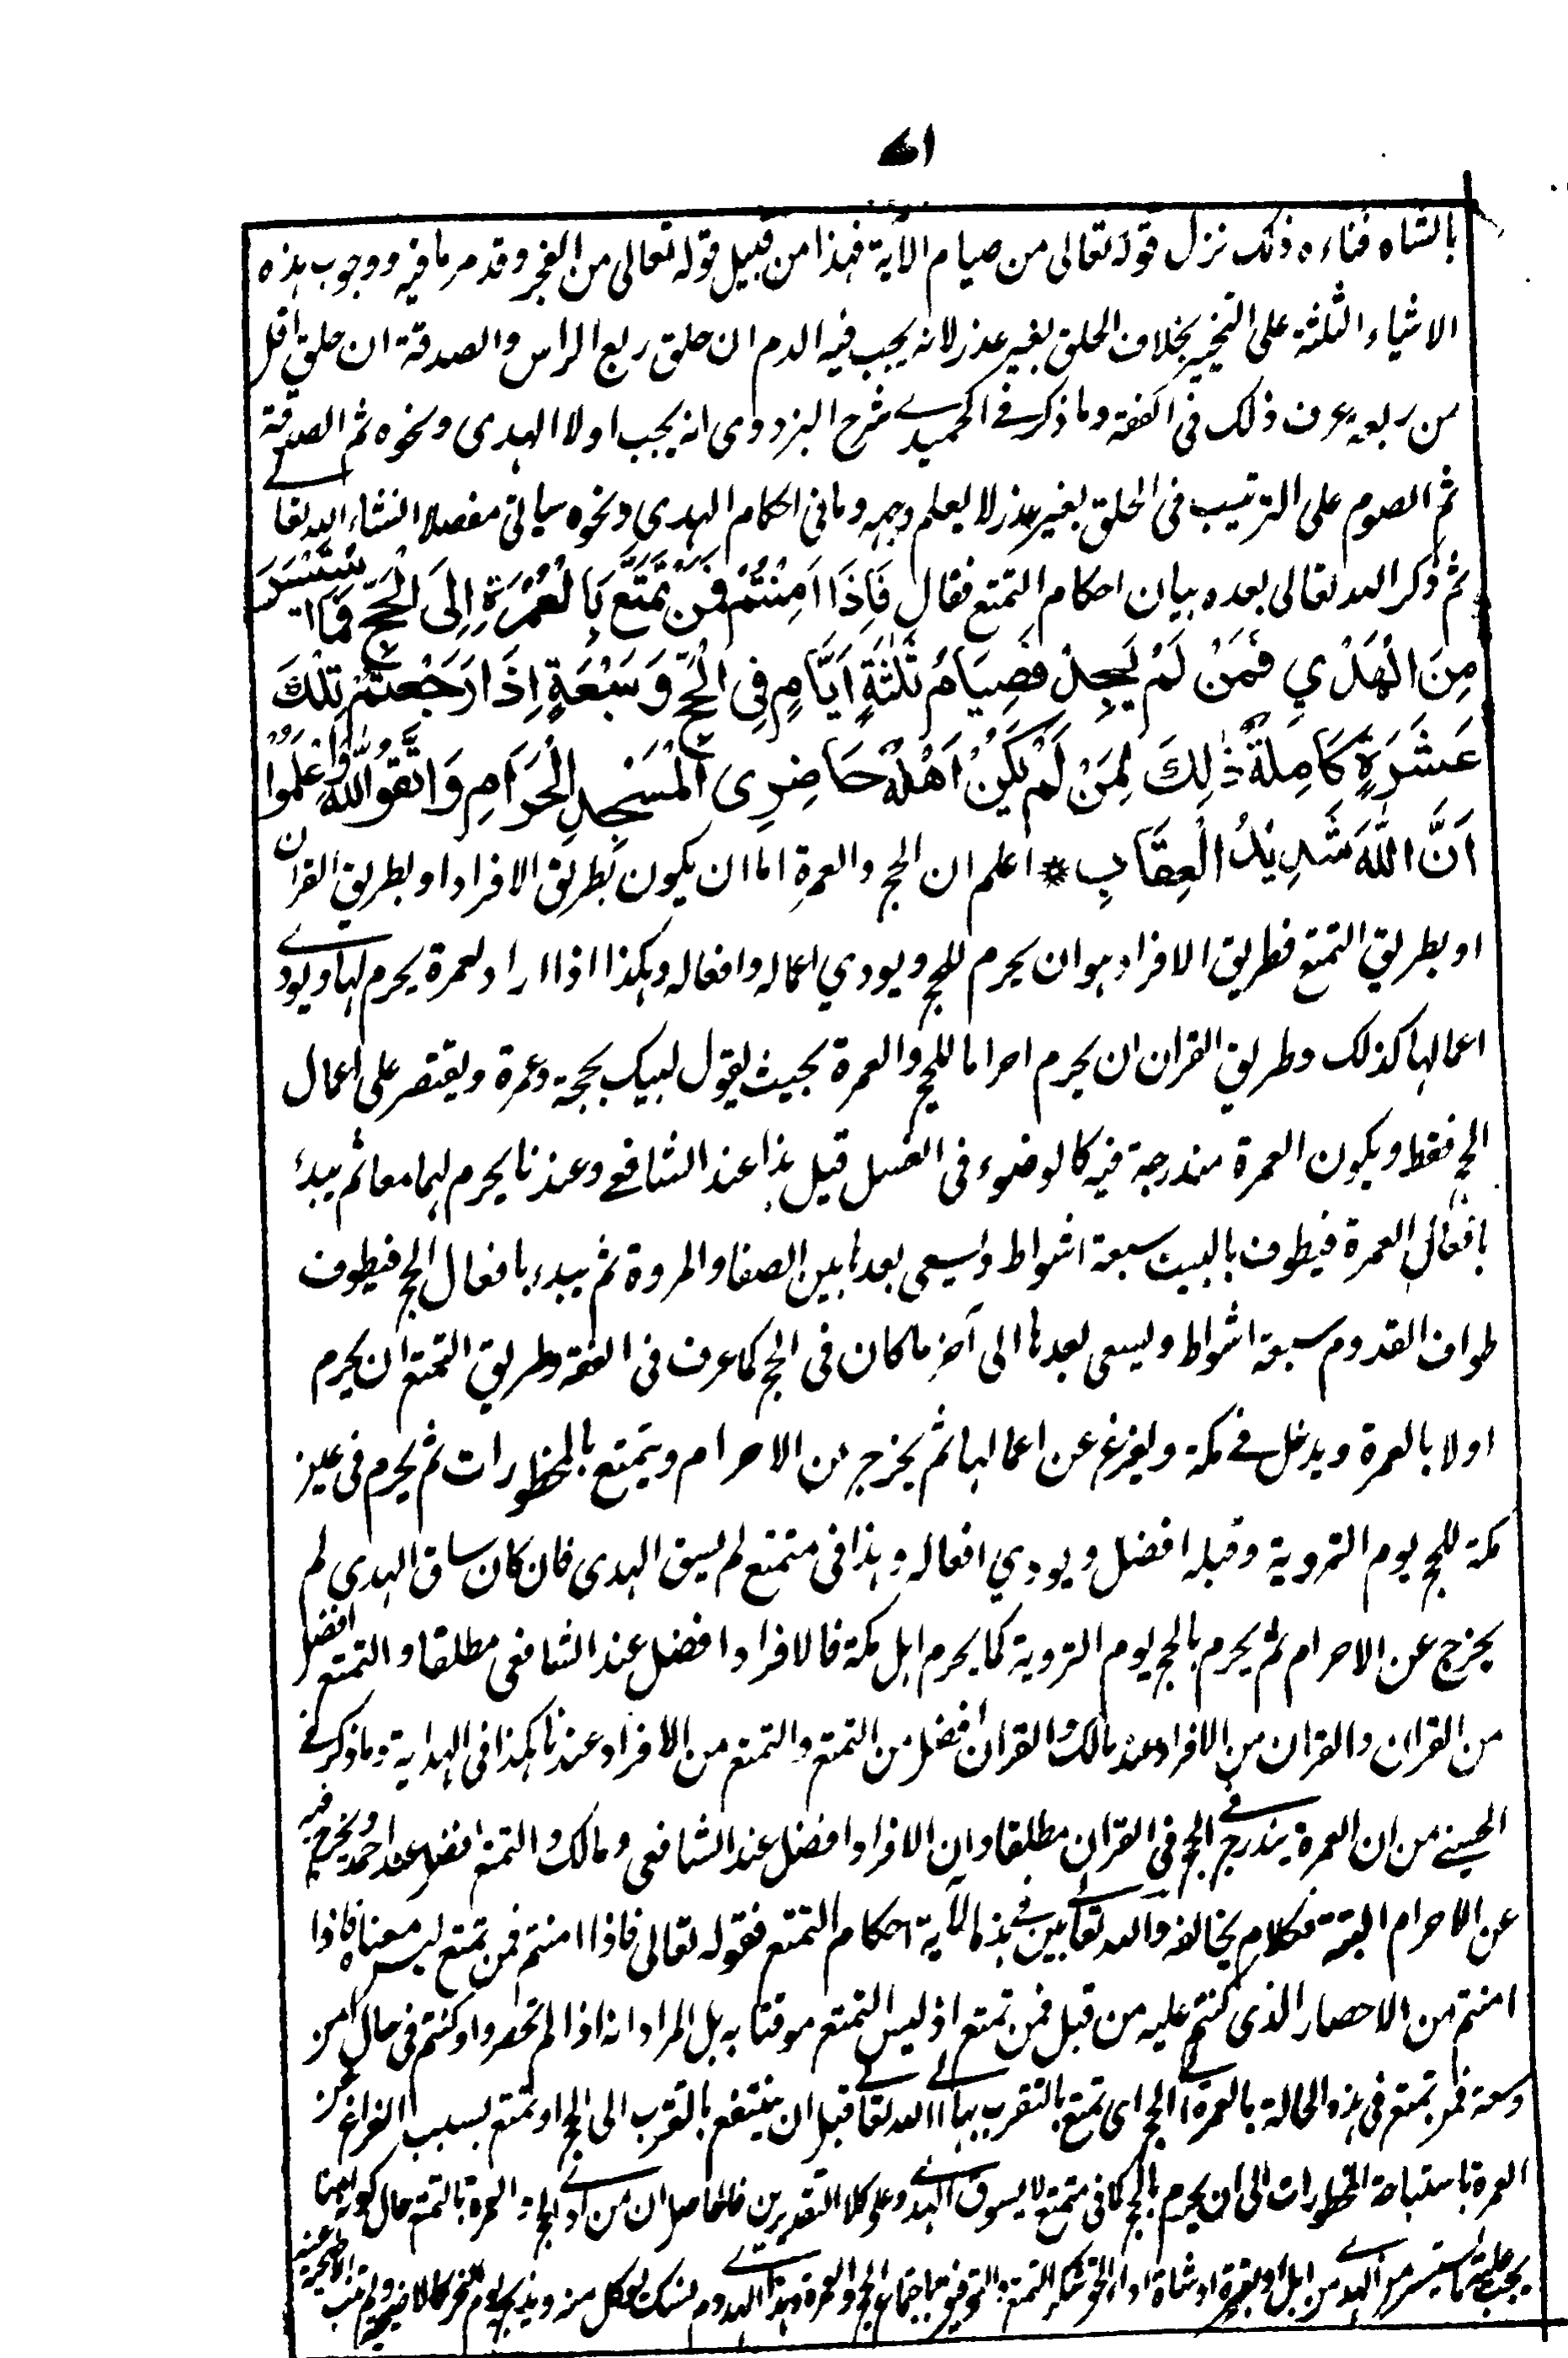 ٧١
بالشاه فناءه ذلك نزل قوله تعالى من صيام الآية فهذا من قبيل قوله تعالى من الفجر وقد مر ما فيه ووجوب هذه
الاشياء الثلثة على التخيير بخلاف الحلق بغير عذر لانه يجب فيه الدم ان حلق ربع الراس والصدقة ان حلق اقل
من ربعه عرف ذلك فى الفقه وما ذكر فى الحميدى شرح البزدوى انه يجب اولا الهدى ونحوه ثم الصدقة
ثم الصوم على الترتيب فى الحلق بغير عذر لا يعلم وجهه وما فى احكام الهدي ونحوه سياتى مفصلا انشاء الله تعالى
ثم ذكر الله تعالى بعده بيان احكام التمتع فقال فَاِذَا اَمِنْتُمْ فَمَنْ تَمَتَّعَ بِالْعُمْرَةِ اِلَى الْحَجِّ فَمَا اسْتَيْسَرَ
مِنَ الْهَدْيِ فَمَنْ لَمْ يَجِدْ فَصِيَامُ ثَلٰثَةِ اَيَّامٍ فِى الْحَجِّ وَسَبْعَةٍ اِذَا رَجَعْتُمْ تِلْكَ
عَشَرَةٌ كَامِلَةٌ ذٰلِكَ لِمَنْ لَمْ يَكُنْ اَهْلُهٗ حَاضِرِى الْمَسْجِدِ الْحَرَامِ وَاتَّقُوا اللّٰهَ وَاعْلَمُوْا
اَنَّ اللّٰهَ شَدِيْدُ الْعِقَابِ * اعلم ان الحج والعمرة اما ان يكون بطريق الافراد او بطريق القران
او بطريق التمتع فطريق الافراد هو ان يحرم للحج ويودي اعماله وافعاله وهكذا اذا اراد لعمرة يحرم لها ويودى
اعمالها كذلك وطريق القران ان يحرم احراما للحج والعمرة بحيث يقول لبيك بحجة وعمرة ويقتصر على اعمال
الحج فقط ويكون العمرة مندرجة فيه كالوضوء فى الغسل قيل هذا عند الشافعى وعندنا يحرم لهما معا ثم يبدأ
بافعال العمرة فيطوف بالبيت سبعة اشواط ويسعى بعدها بين الصفا والمروة ثم يبدء بافعال الحج فيطوف
طواف القدوم سبعة اشواط ويسعى بعدها الى آخر ما كان فى الحج كما عرف فى الفقه وطريق التمتع ان يحرم
اولا بالعمرة ويدخل فى مكة ويفرغ عن اعمالها ثم يخرج من الاحرام ويتمتع بالمحظورات ثم يحرم فى غير
مكة للحج يوم التروية وقبله افضل ويودي افعاله وهذا فى متمتع لم يسق الهدى فان كان ساق الهدى لم
يخرج عن الاحرام ثم يحرم بالحج يوم التروية كما يحرم اهل مكة فالافراد افضل عند الشافعى مطلقا والتمتع افضل
من القران والقران من الافراد عند مالك والقران افضل من التمتع والتمتع من الافراد عندنا هكذا فى الهداية وما ذكر فى
الحسينى من ان العمرة يندرج فى الحج فى القران مطلقا وان الافراد افضل عند الشافعى ومالك والتمتع افضل عند احمد ويخرج فيه
عن الاحرام البتة فكلام يخالفه والله تعالى بين فى هذه الآية احكام التمتع فقوله تعالى فاذا امنتم فمن تمتع ليس معناه فاذا
امنتم من الاحصار الذى كنتم عليه من قبل فمن تمتع اذ ليس التمتع موقتا به بل المراد انه اذا لم تحصروا وكنتم فى حال امن
وسعة فمن تمتع فى هذه الحالة بالعمرة الى الحج اى تمتع بالتقرب بها الى الله تعالى قبل ان ينتفع بالتقرب الى الحج او تمتع بسبب الفراغ عن
العمرة باستباحة المحظورات الى ان يحرم بالحج كما فى متمتع لا يسوق الهدى وعلى كلا التقديرين فالحاصل ان من ادى العمرة بالتمتع حال كونه
يجب عليه ما استيسر من الهدى من ابل او بقرة او شاة لشكر التمتع والتوفيق باجتماع الحج والعمرة وهذا الهدى دم نسك يوكل منه ويذبح يوم النحر كالاضحية